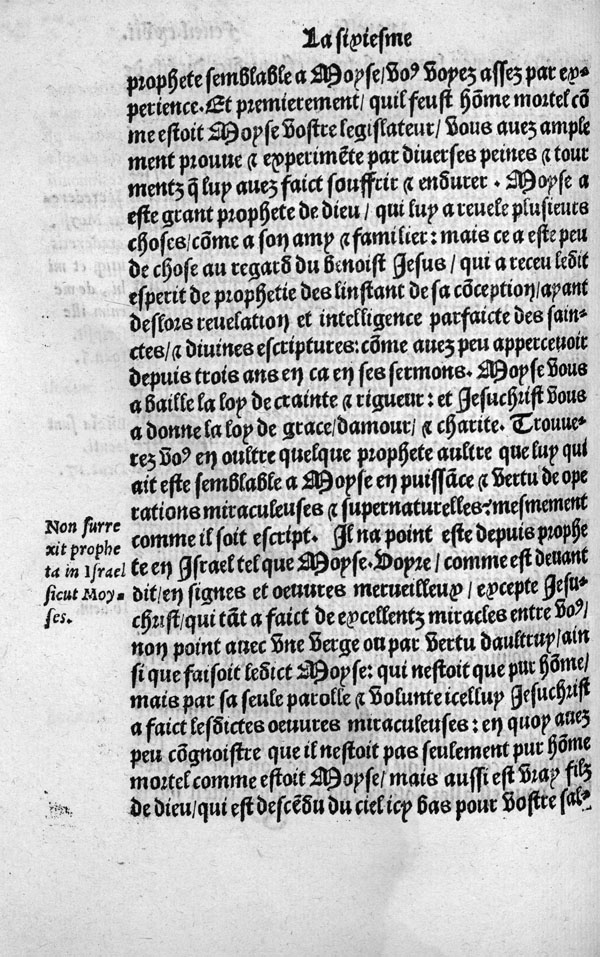 La sixiesme
prophete semblable a Moyse/voꝰ voyez assez par ex-
perience. Et premierement/ quil feust hõme mortel cõ
me estoit Moyse vostre legislateur/ vous auez ample
ment prouue ⁊ experimẽte par diuerses peines ⁊ tour
mentz q̃ luy auez faict souffrir ⁊ endurer. Moyse a
este grant prophete de dieu/ qui luy a reuele plusieurs
choses/cõme a son amy ⁊ familier: mais ce a este peu
de chose au regard du benoist Jesus/ qui a receu ledit
esperit de prophetie des linstant de sa cõception/ayant
deslors reuelation et intelligence parfaicte des sain-
ctes/⁊ diuines escriptures: cõme auez peu apperceuoir
depuis trois ans en ca en ses sermons. Moyse vous
a baille la loy de crainte ⁊ rigueur: et Jesuchrist vous
a donne la loy de grace/damour/ ⁊ charite. Trouue-
rez voꝰ en oultre quelque prophete aultre que luy qui
ait este semblable a Moyse en puissãce ⁊ vertu de ope
rations miraculeuses ⁊ supernaturelles: mesmement
comme il soit escript. Il na point este depuis prophe
te en Israel tel que Moyse. Voyre/ comme est deuant
dit/en signes et oeuures merueilleux/ excepte Jesu-
christ/qui tãt a faict de excellentz miracles entre voꝰ/
non point auec vne verge ou par vertu daultruy/ain
si que faisoit ledict Moyse: qui nestoit que pur hõme/
mais par sa seule parolle ⁊ volunte icelluy Jesuchrist
a faict lesdictes oeuures miraculeuses: en quoy auez
peu cõgnoistre que il nestoit pas seulement pur hõme
mortel comme estoit Moyse/ mais aussi est vray filz
de dieu/qui est descẽdu du ciel icy bas pour vostre sal-
Non surre
xit prophe
ta in Israel
sicut Moy-
ses.